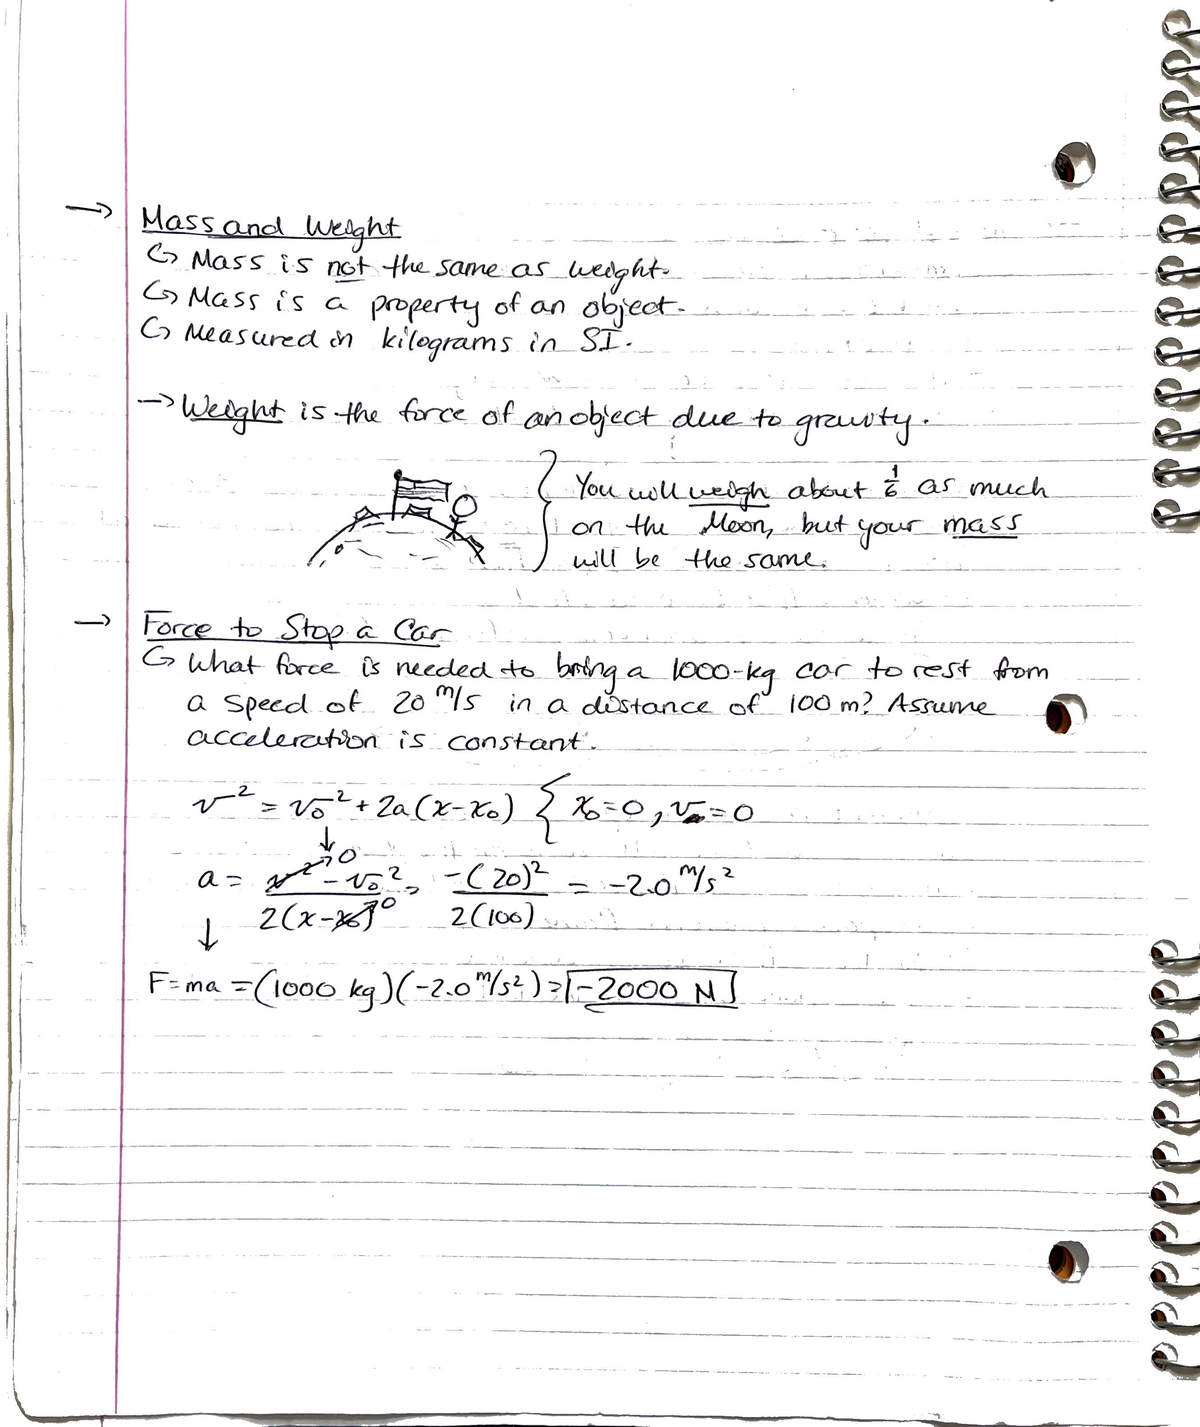 → Mass and Weight
↳ Mass is not the same as weight.
↳ Mass is a property of an object.
↳ Measured in kilograms in SI.
→ Weight is the force of an object due to gravity.
You will weigh about 1/6 as much
on the Moon, but your mass
will be the same.
→ Force to Stop a Car
↳ What force is needed to bring a 1000-kg car to rest from
a speed of 20 m/s in a distance of 100 m? Assume
acceleration is constant.
v² = v₀² + 2a(x-x₀) { x₀=0, v=0
↓
a = (v²→0 - v₀²) / 2(x-x₀→0) = -(20)² / 2(100) = -2.0 m/s²
↓
F=ma = (1000 kg)(-2.0 m/s²) = -2000 N